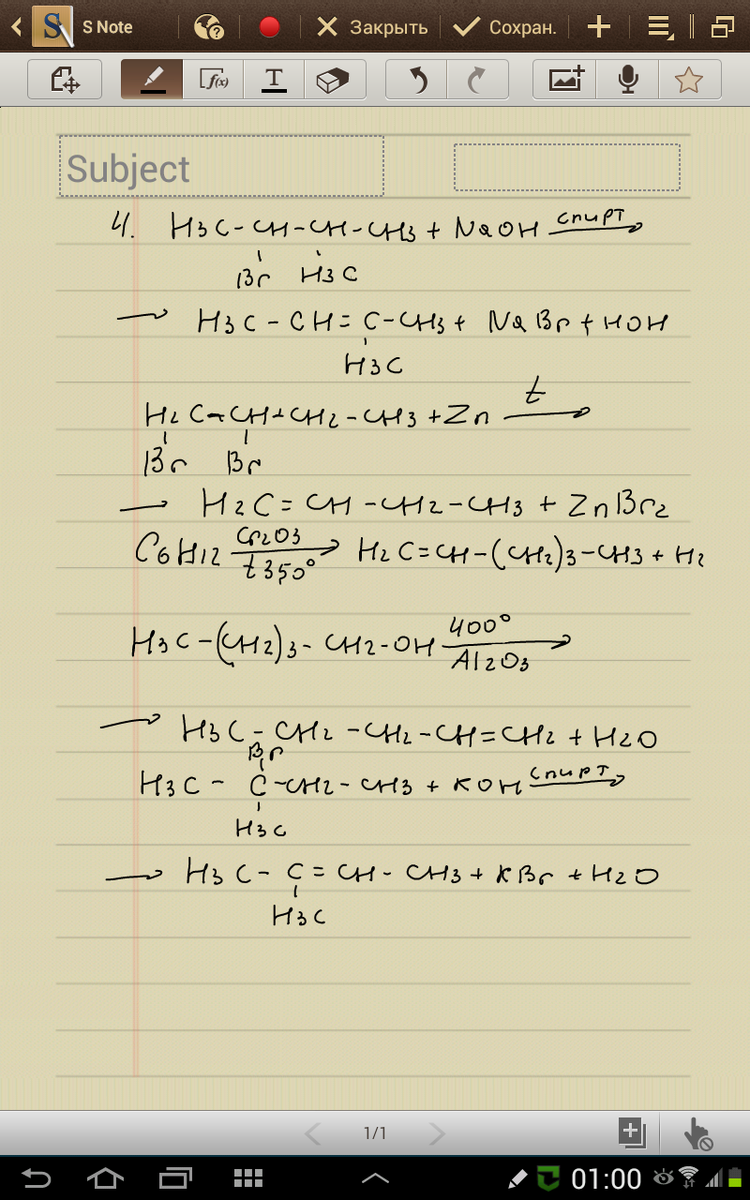 S Note
Закрыть
Сохран.
f(x)
T
Subject
4. H3C-CH-CH-CH3 + NaOH спирт
Br H3C
→ H3C - CH = C-CH3 + NaBr + HOH
H3C
H2C-CH-CH2-CH3 + Zn t
Br Br
→ H2C = CH-CH2-CH3 + ZnBr2
C6H12 Cr2O3 t 350° → H2C=CH-(CH2)3-CH3 + H2
H3C-(CH2)3-CH2-OH 400° Al2O3
→ H3C-CH2-CH2-CH=CH2 + H2O
Br
H3C - C-CH2-CH3 + KOH спирт
H3C
→ H3C - C = CH - CH3 + KBr + H2O
H3C
1/1
01:00